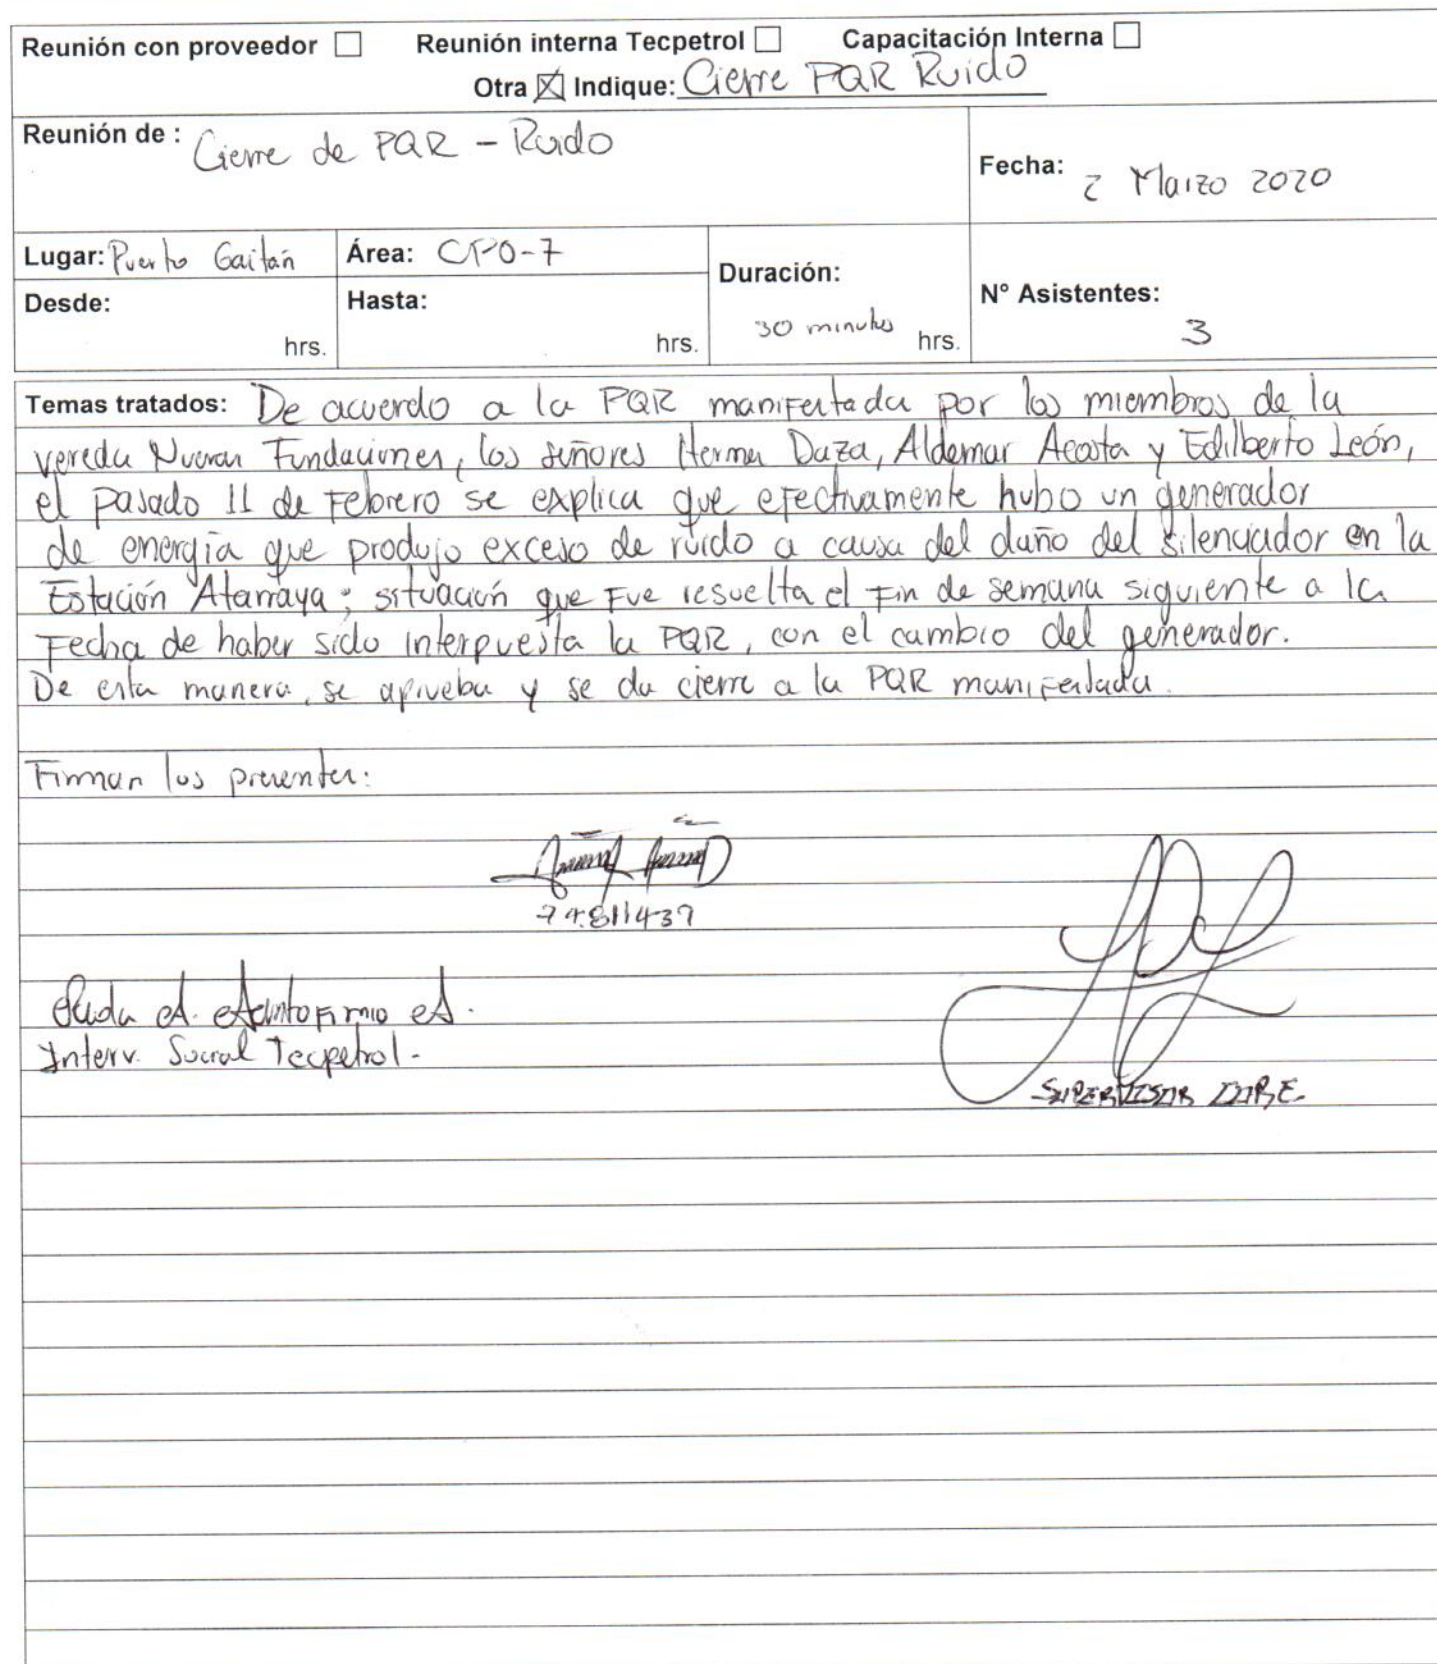 Reunión con proveedor ☐ Reunión interna Tecpetrol ☐ Capacitación Interna ☐
Otra ☒ Indique: Cierre PQR Ruido
Reunión de : Cierre de PQR - Ruido
Fecha: 2 Marzo 2020
Lugar: Puerto Gaitán Área: CPO-7
Duración: 30 minutos hrs.
N° Asistentes: 3
Desde: hrs. Hasta: hrs.
Temas tratados: De acuerdo a la PQR manifestada por los miembros de la
vereda Nuevas Fundaciones, los señores Hermes Daza, Aldemar Acosta y Edilberto León,
el pasado 11 de Febrero se explica que efectivamente hubo un generador
de energía que produjo exceso de ruido a causa del daño del silenciador en la
Estación Atarraya; situación que fue resuelta el fin de semana siguiente a la
Fecha de haber sido interpuesta la PQR, con el cambio del generador.
De esta manera, se aprueba y se da cierre a la PQR manifestada.
Firman los presentes:
74.811437
A. Santofimio A.
Interv. Social Tecpetrol.
SUPERVISOR